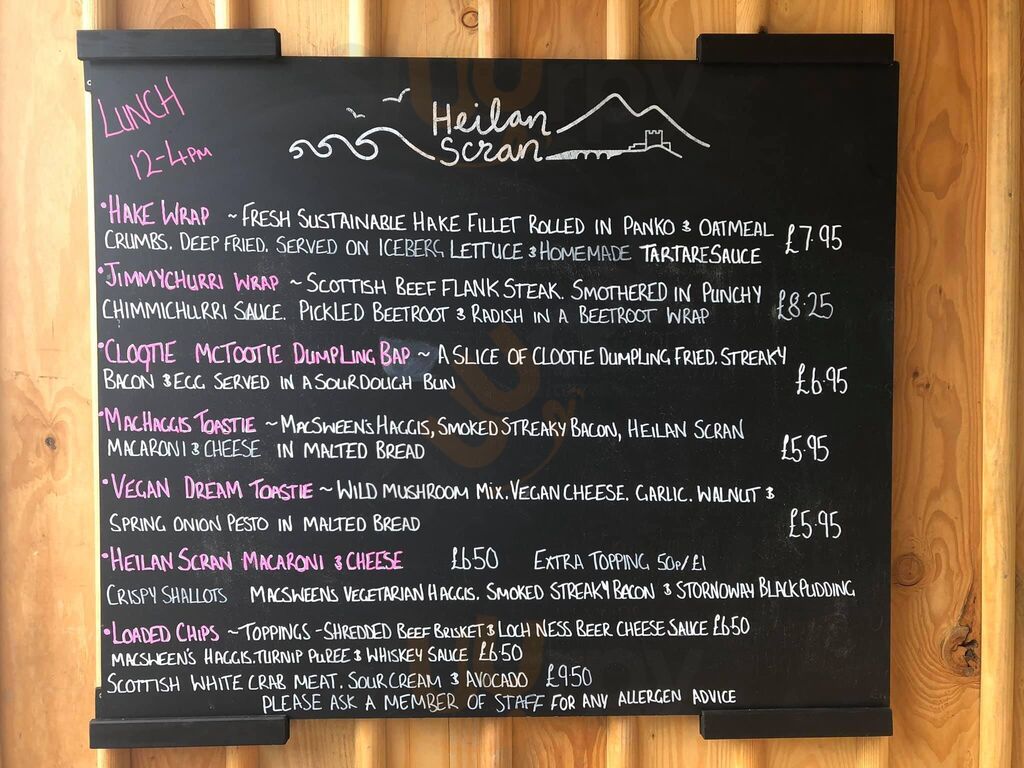 LUNCH
12-4PM
Heilan
Scran
•HAKE WRAP ~ FRESH SUSTAINABLE HAKE FILLET ROLLED IN PANKO & OATMEAL
CRUMBS. DEEP FRIED. SERVED ON ICEBERG LETTUCE & HOMEMADE TARTARE SAUCE £7.95
•JIMMYCHURRI WRAP ~ SCOTTISH BEEF FLANK STEAK. SMOTHERED IN PUNCHY
CHIMMICHURRI SAUCE. PICKLED BEETROOT & RADISH IN A BEETROOT WRAP £8.25
•CLOOTIE MCTOOTIE DUMPLING BAP ~ A SLICE OF CLOOTIE DUMPLING FRIED. STREAKY
BACON & EGG SERVED IN A SOURDOUGH BUN £6.95
•MACHAGGIS TOASTIE ~ MACSWEEN'S HAGGIS, SMOKED STREAKY BACON, HEILAN SCRAN
MACARONI & CHEESE IN MALTED BREAD £5.95
•VEGAN DREAM TOASTIE ~ WILD MUSHROOM MIX. VEGAN CHEESE. GARLIC. WALNUT &
SPRING ONION PESTO IN MALTED BREAD £5.95
•HEILAN SCRAN MACARONI & CHEESE £6.50 EXTRA TOPPING 50P/£1
CRISPY SHALLOTS MACSWEEN'S VEGETARIAN HAGGIS. SMOKED STREAKY BACON & STORNOWAY BLACK PUDDING
•LOADED CHIPS ~ TOPPINGS - SHREDDED BEEF BRISKET & LOCH NESS BEER CHEESE SAUCE £6.50
MACSWEEN'S HAGGIS. TURNIP PUREE & WHISKEY SAUCE £6.50
SCOTTISH WHITE CRAB MEAT. SOUR CREAM & AVOCADO £9.50
PLEASE ASK A MEMBER OF STAFF FOR ANY ALLERGEN ADVICE